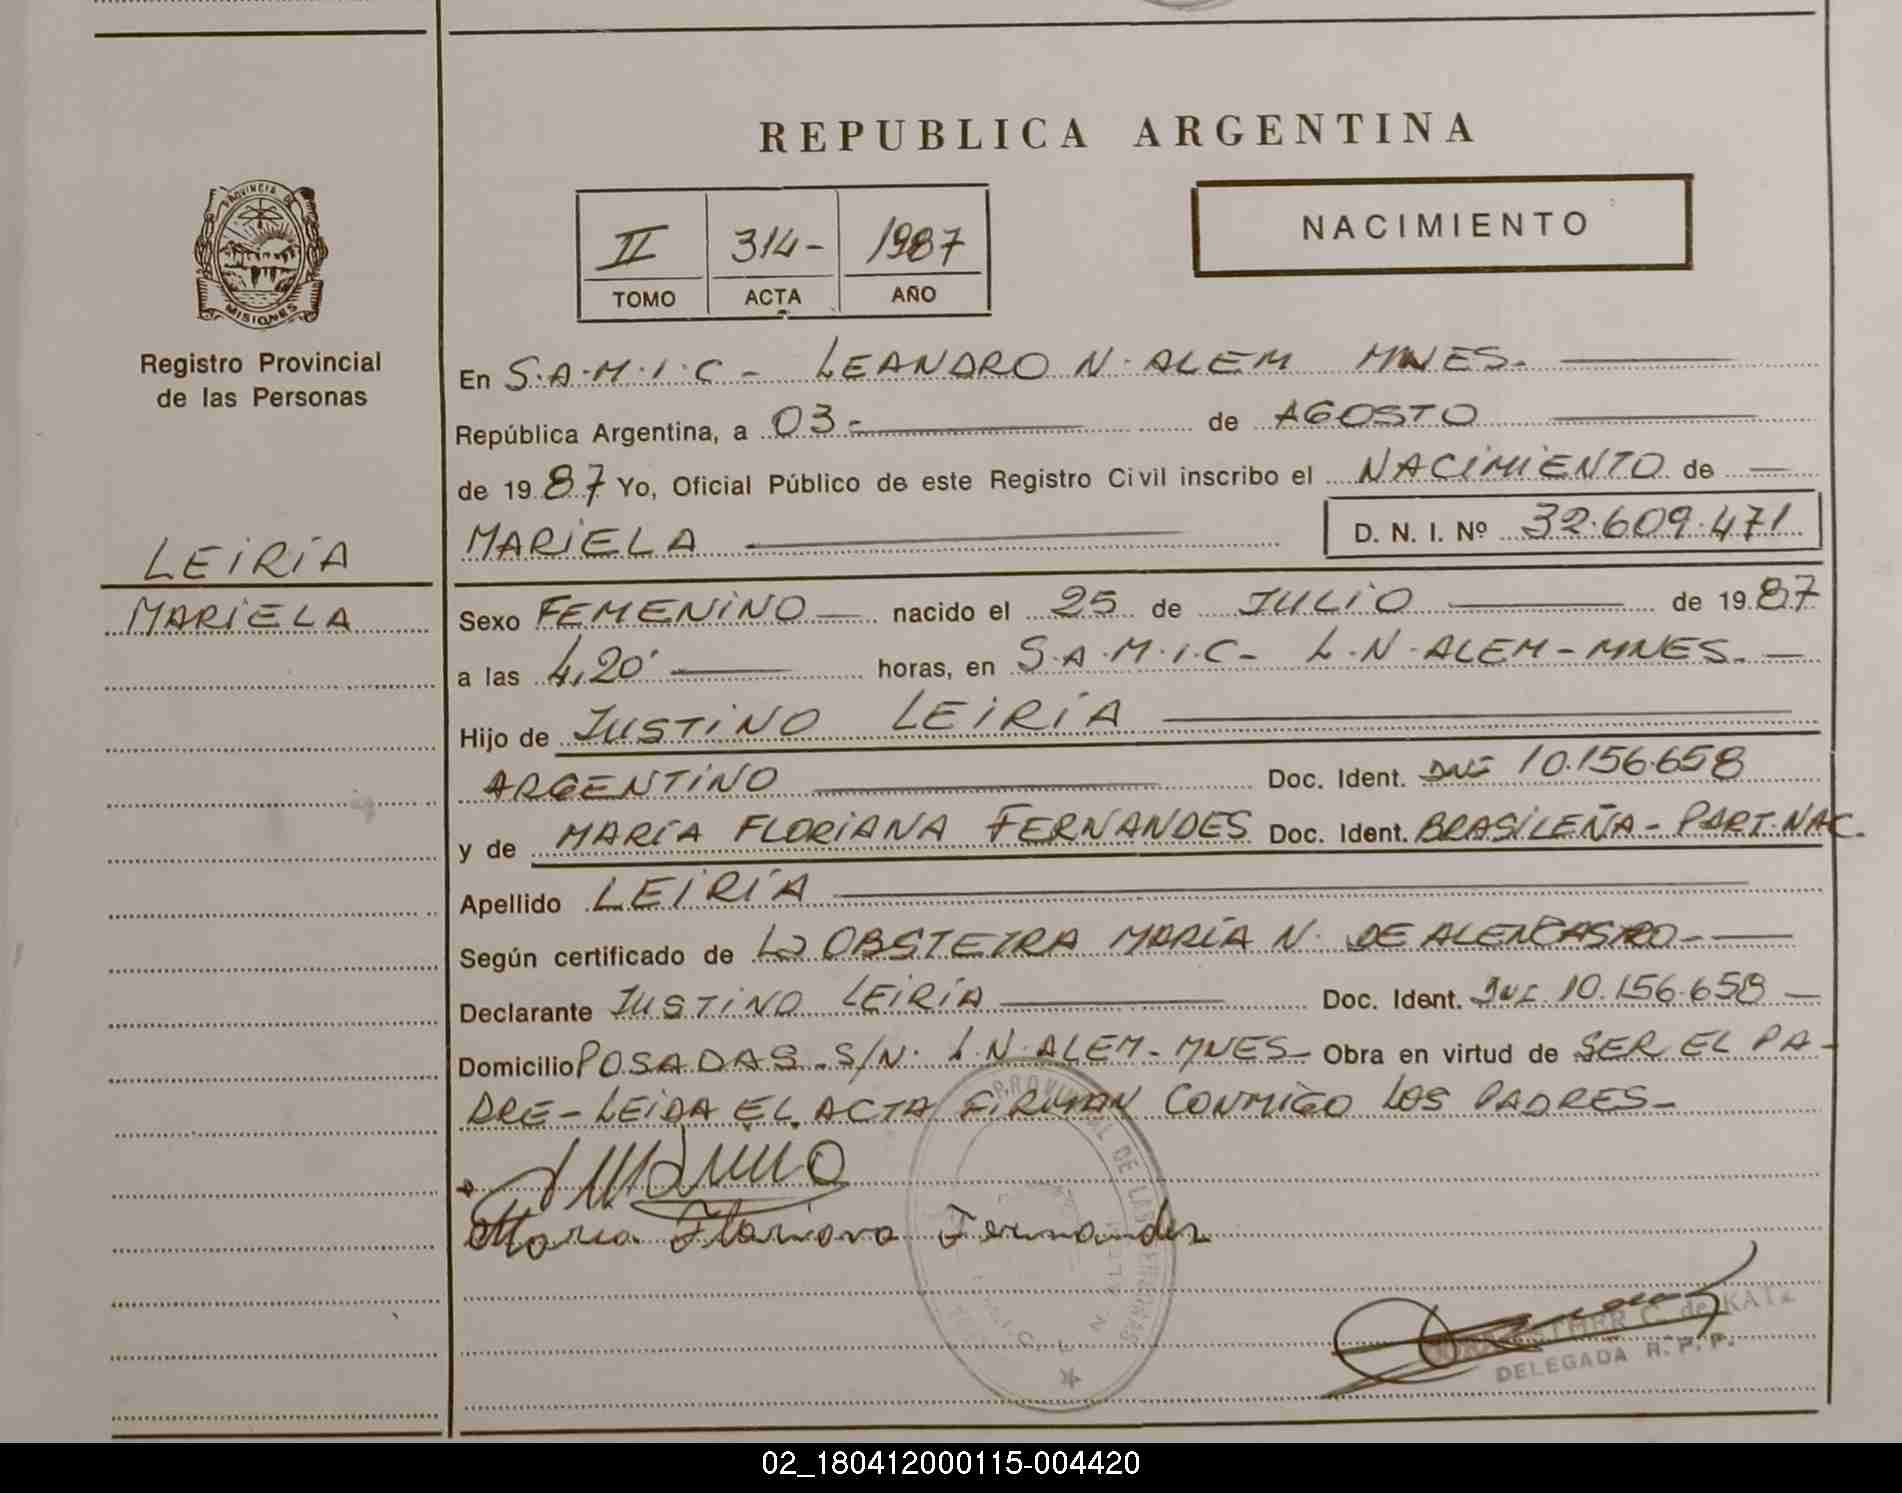 REPUBLICA ARGENTINA
PROVINCIA DE MISIONES
Registro Provincial
de las Personas
LEIRÍA
MARIELA
II 314- 1987
TOMO ACTA AÑO
NACIMIENTO
En S.A.M.I.C - LEANDRO N. ALEM MNES.
República Argentina, a 03- de AGOSTO
de 1987 Yo, Oficial Público de este Registro Civil inscribo el NACIMIENTO de
MARIELA D. N. I. Nº 32.609.471
Sexo FEMENINO nacido el 25 de JULIO de 1987
a las 4,20' horas, en S.A.M.I.C- L.N.ALEM-MNES.
Hijo de JUSTINO LEIRÍA
ARGENTINO Doc. Ident. DNI 10.156.658
y de MARÍA FLORIANA FERNANDES Doc. Ident. BRASILEÑA- PART.NAC.
Apellido LEIRÍA
Según certificado de La OBSTETRA MARÍA N. DE ALENCASTRO-
Declarante JUSTINO LEIRÍA Doc. Ident. DNI 10.156.658
Domicilio POSADAS S/N. L.N.ALEM-MNES- Obra en virtud de SER EL PA-
DRE- LEIDA EL ACTA FIRMAN CONMIGO LOS PADRES-
Maria Floriana Fernandez
PROVINCIAL DE LAS PERSONAS
L. N. ALEM
ESTHER C. de KATZ
DELEGADA R. P. P.
02_180412000115-004420